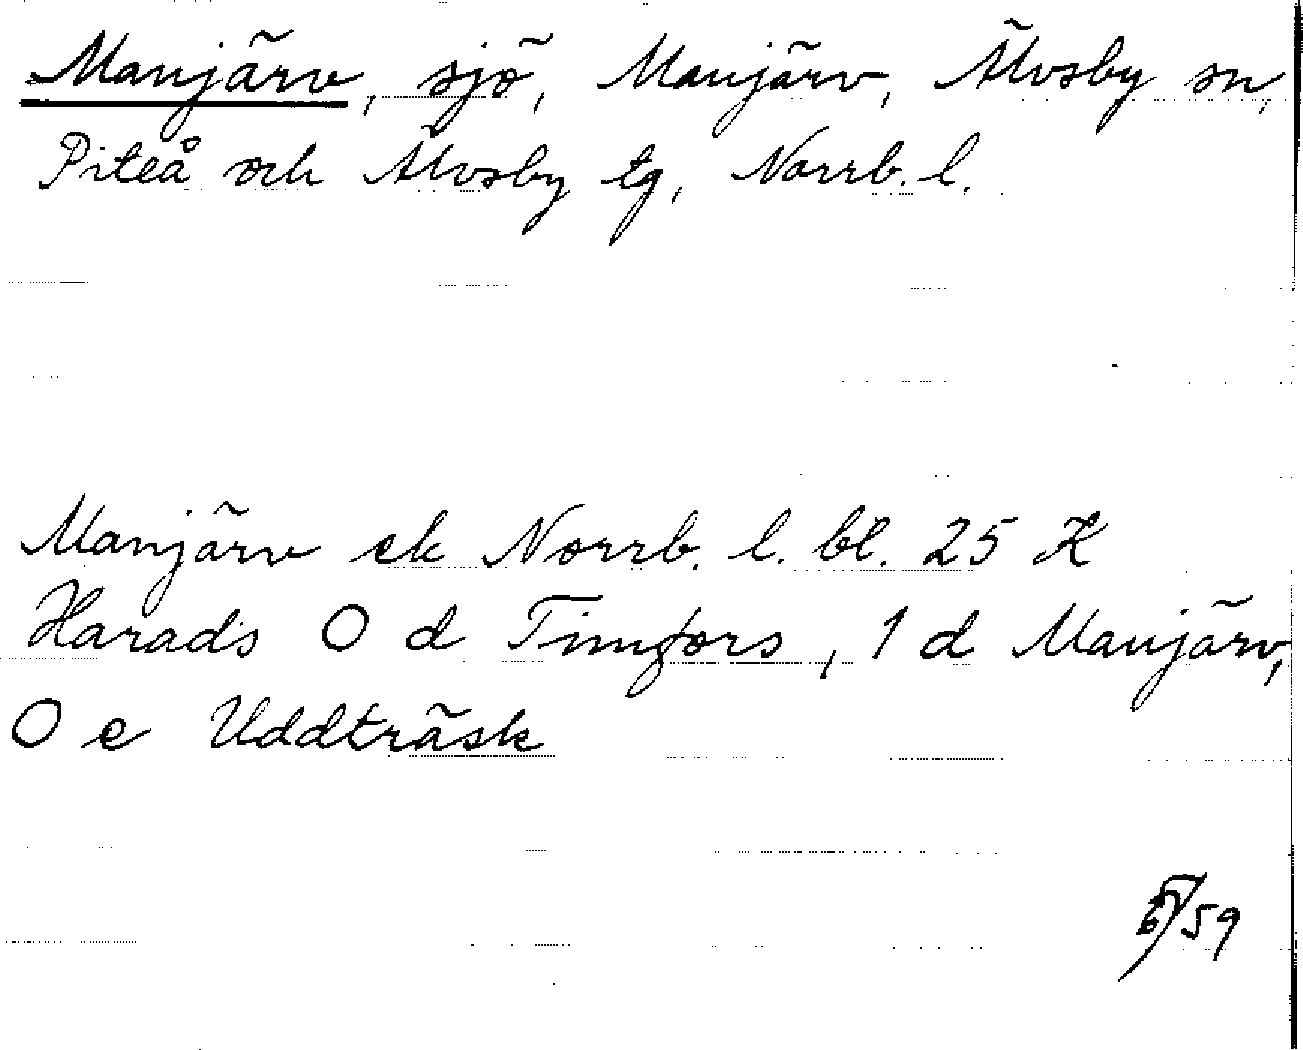 Manjärv, sjö, Manjärv, Älvsby sn,
Piteå och Älvsby tg, Norrb. l.
Manjärv ek Norrb. l. bl. 25 K
Harads 0 d Timfors, 1 d Manjärv,
0 e Uddträsk
59